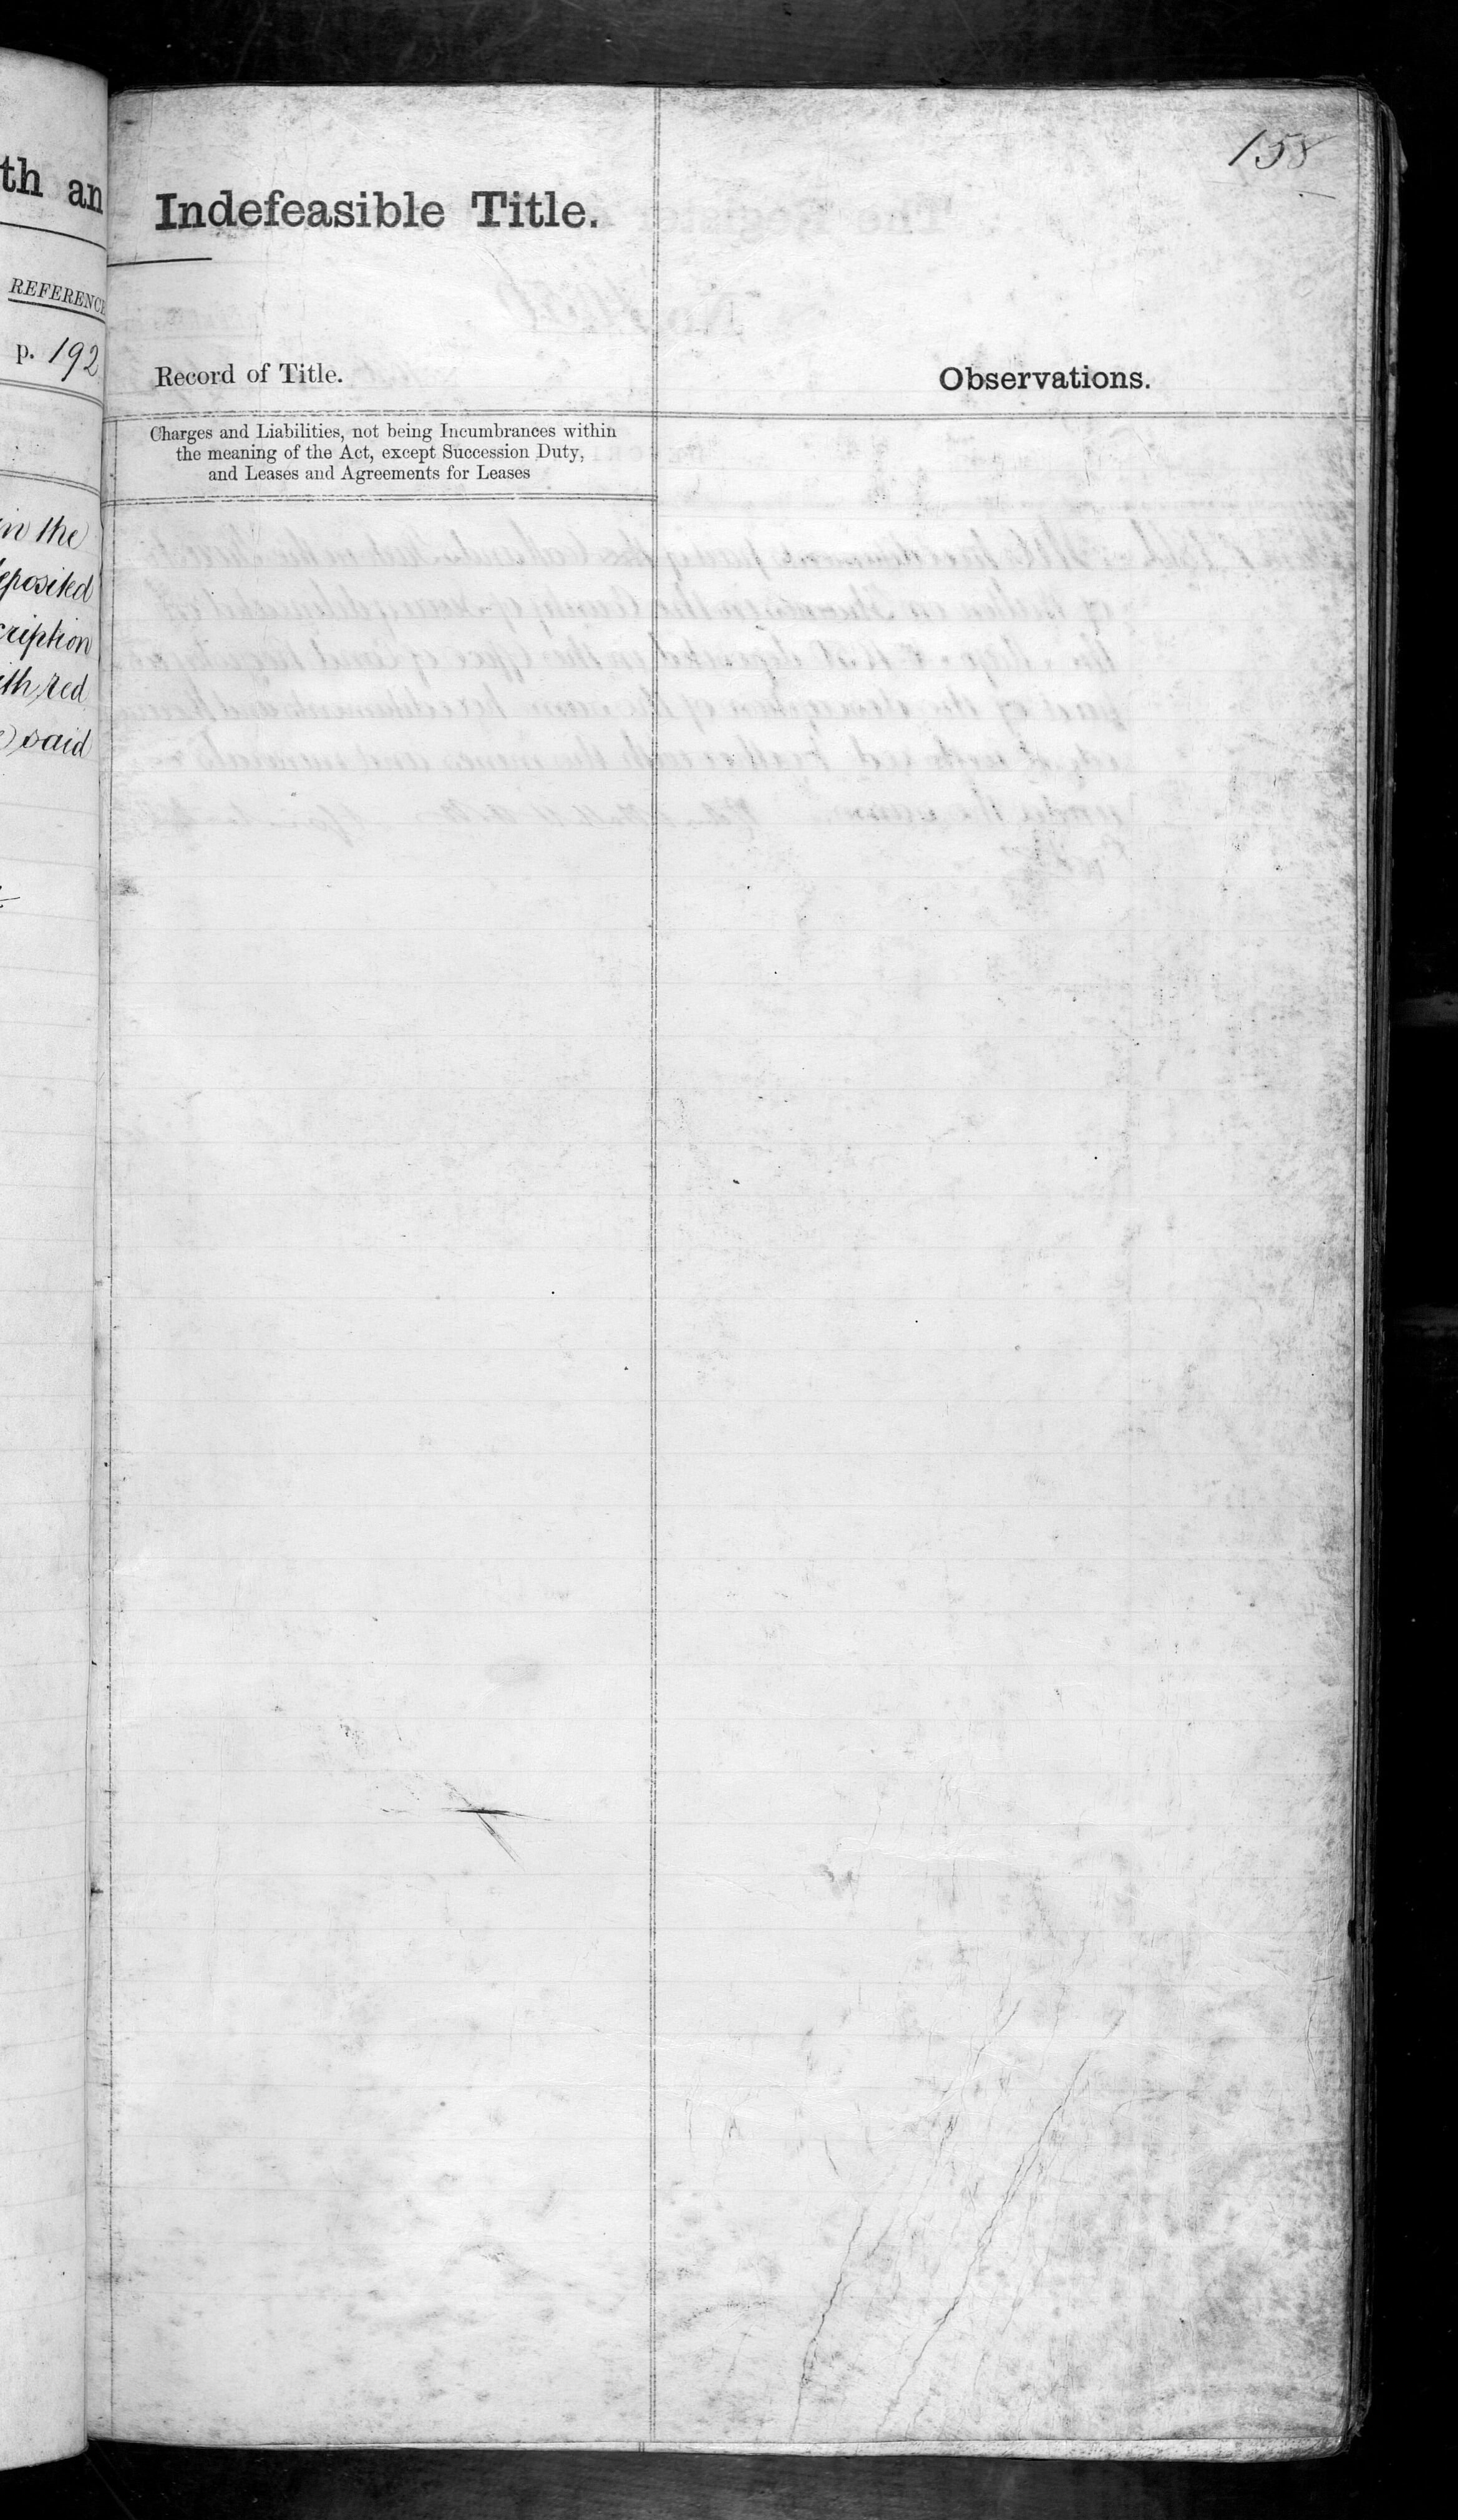 th an
REFERENC
p. 192
in the
eposited
cription
ith red
said
158
Indefeasible Title.
Record of Title.
Observations.
Charges and Liabilities, not being Incumbrances within
the meaning of the Act, except Succession Duty,
and Leases and Agreements for Leases